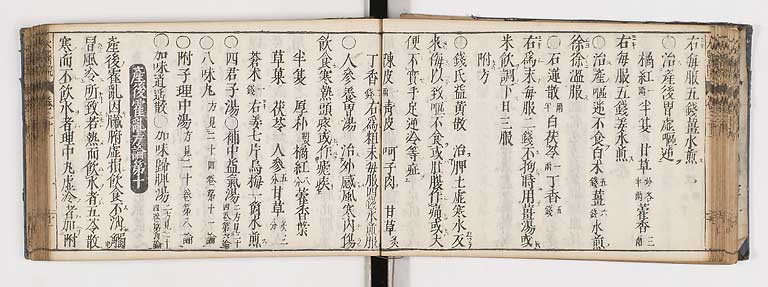 右每服五錢薑水煎
○治產後胃虛嘔逆
橘紅一兩半夏 甘草各半兩藿香三兩
右每服五錢姜水煎
○治產嘔逆不食白朮五錢薑六錢水煎
徐徐溫服
○石蓮散一兩半白茯苓一兩丁香五錢
右爲末每服二錢不拘時用薑湯或
米飲調下日三服
附方
○錢氏益黃散 治脾土虛寒水反
來侮以致嘔不食或肚腹作痛或大
便不實手足逆冷等症
陳皮一兩青皮 訶子肉 甘草
丁香二錢右爲粗末每服四錢水煎服
○人參養胃湯 治外感風寒內傷
飲食寒熱頭疼或作瘧疾
半夏 厚朴製橘紅八分藿香葉
草菓 茯苓 人參五分甘草炙三分
蒼朮一錢右姜七片烏梅一個水煎
○四君子湯○補中益氣湯二方見二十四卷第六論
○八味丸方見二十四卷第十一論
○附子理中湯方見二十卷第八論
○加味逍遙散○加味歸脾湯二方見二十四卷第九論
產後霍亂方論第十
產後霍亂因臟腑虛損飲食不消觸
冒風冷所致若熱而飲水者五苓散
寒而不飲水者理中丸虛冷者加附